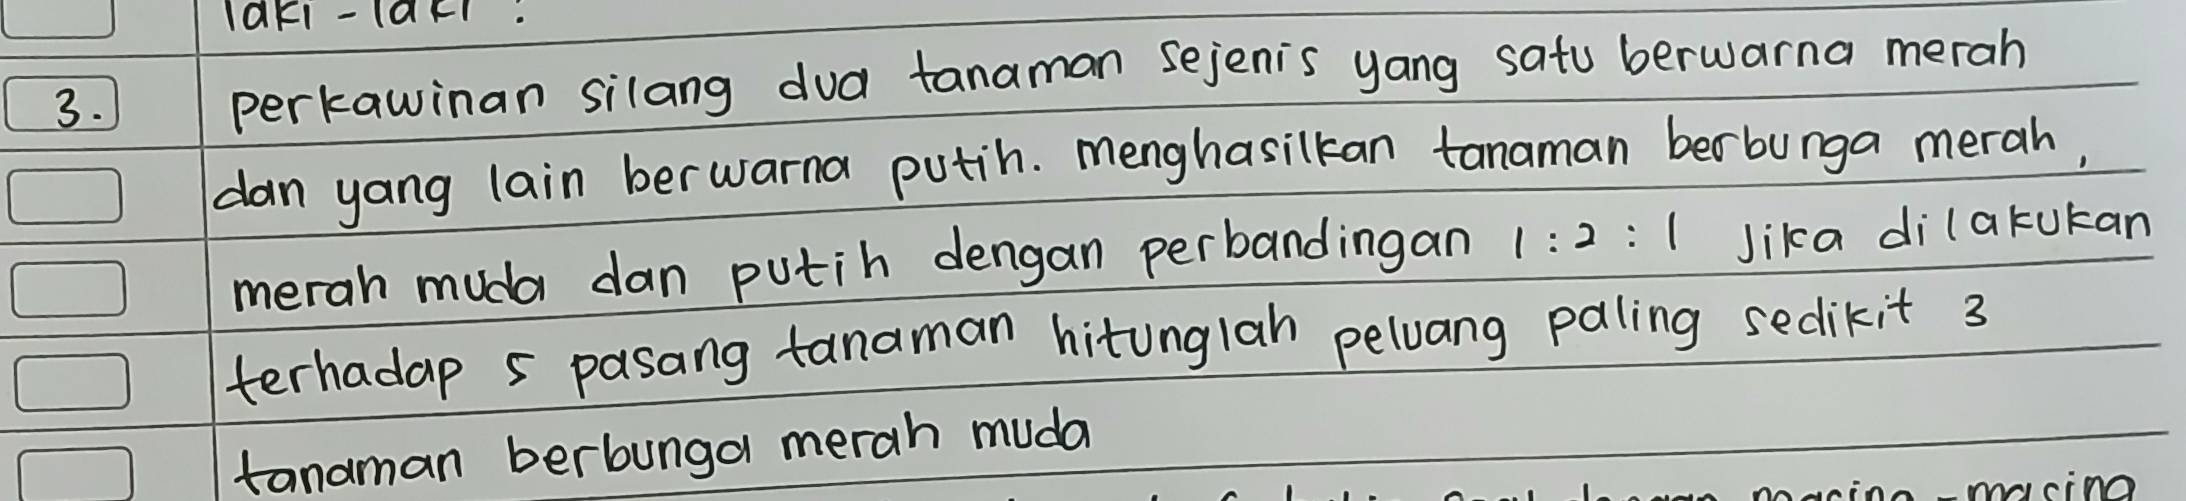 laki-laki.
3. perkawinan silang dua tanaman sejenis yang satu berwarna merah
dan yang lain berwarna putih. Menghasilkan tanaman berbunga merah,
merah muda dan putih dengan perbandingan 1:2:1 Jika dilakukan
terhadap 5 pasang tanaman hitunglah peluang paling sedikit 3
tanaman berbunga merah muda
masing-masing